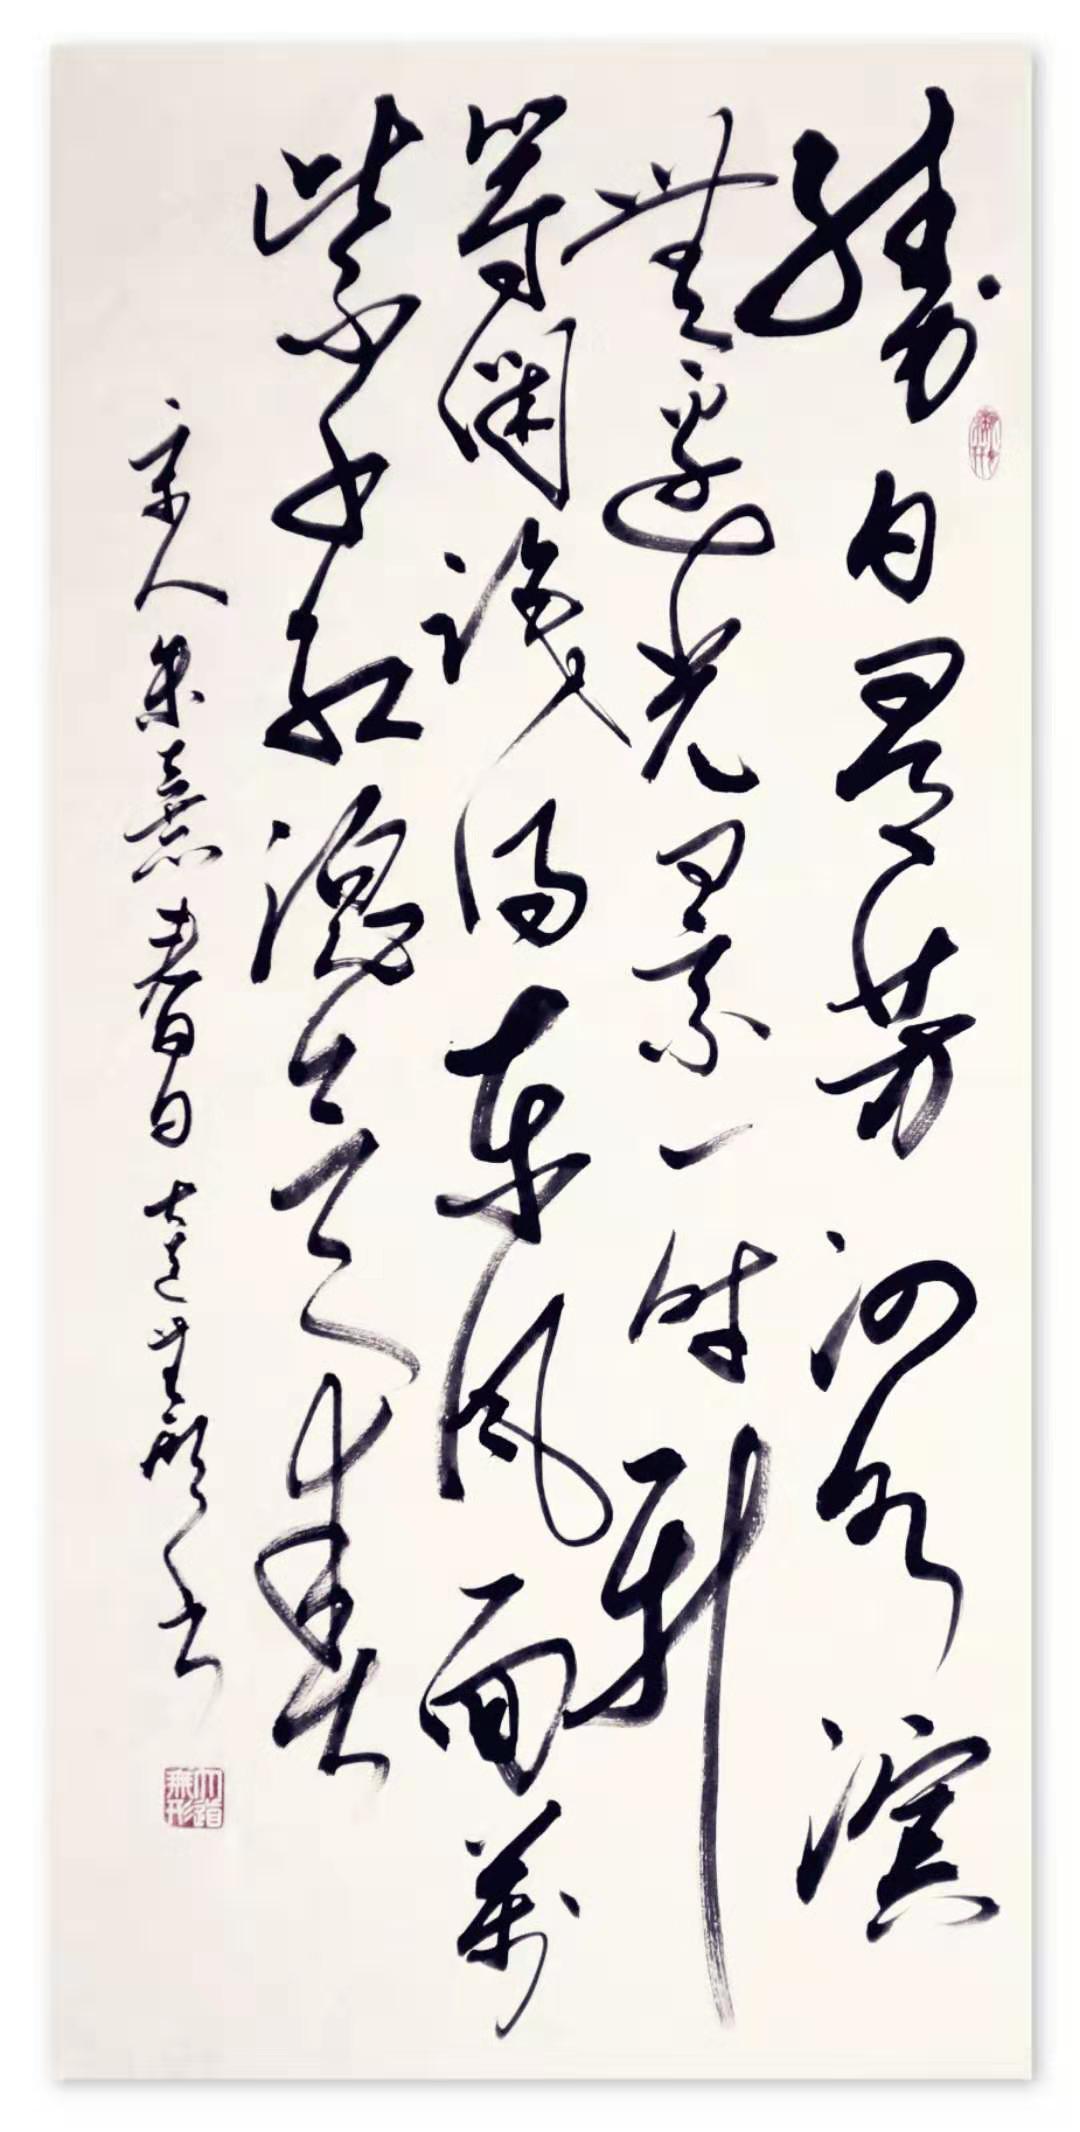 勝日尋芳泗水濱
無邊光景一時新
等閑識得東風面萬
紫千紅總是春
宋人朱熹春日大道無形書
大道無形